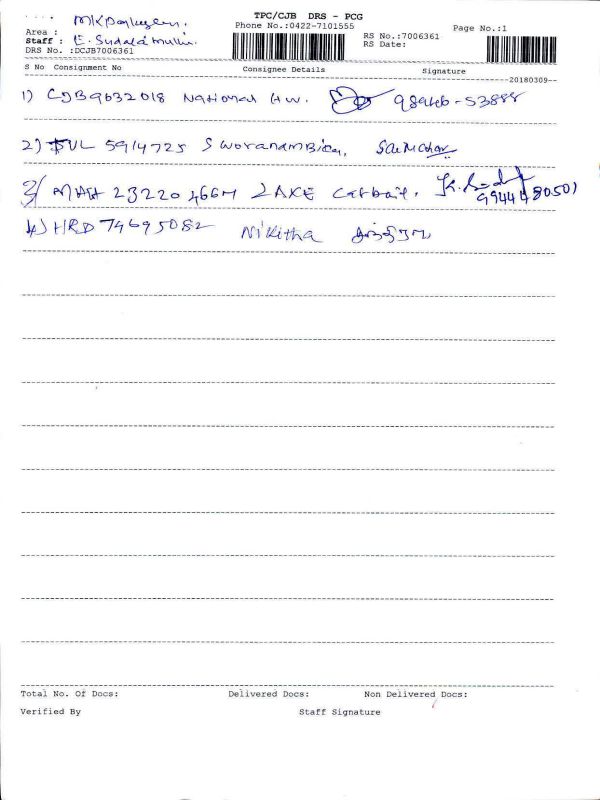 TPC/CJB DRS - PCG
Phone No.:0422-7101555
Page No.:1
Area :
Staff : E. Sudalaimuthu
RS No.:7006361
DRS No. :DCJB7006361
RS Date:
S No Consignment No Consignee Details Signature
20180309
1) CJB9632018 National H.W.
2) TUL 5914725 Sworanambica,
3) MAA 23220 4664 LAXE 9944480501
4) HRD 74695082 Nikitha
Total No. Of Docs: Delivered Docs: Non Delivered Docs:
Verified By Staff Signature